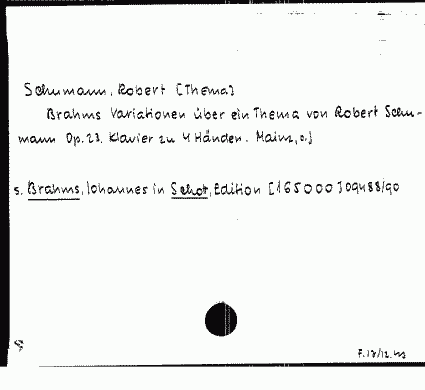 Schumann, Robert [Thema]
Brahms Variationen über ein Thema von Robert Schu-
mann Op. 23. Klavier zu 4 Händen. Mainz, o.J
s. Brahms, Johannes in Schot, Edition [165000] 09488/90